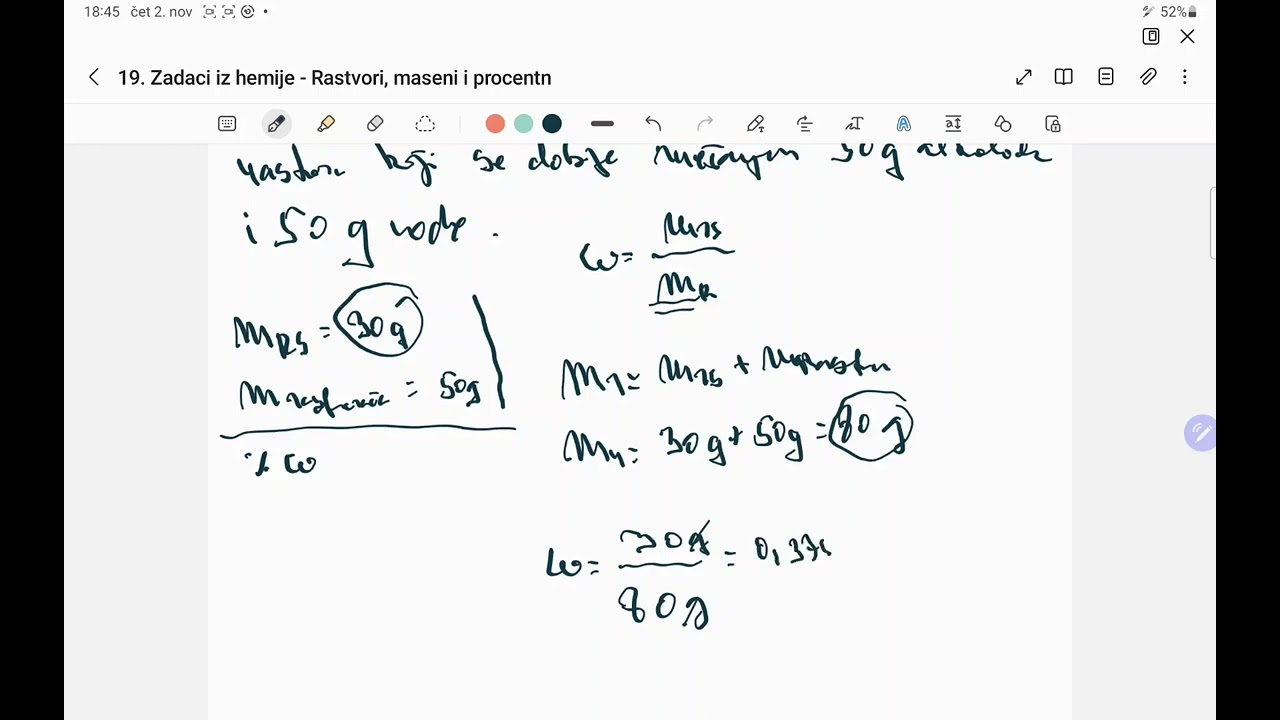 18:45 čet 2. nov 52%
19. Zadaci iz hemije - Rastvori, maseni i procentn
rastvora koji se dobije mešanjem 30g alkohola
i 50 g vode.
ω = mrs / mR
mRS = 30g
m rastvarača = 50g
% ω
mr = mrs + mrastv
mr = 30g + 50g = 80g
ω = 30g / 80g = 0,375